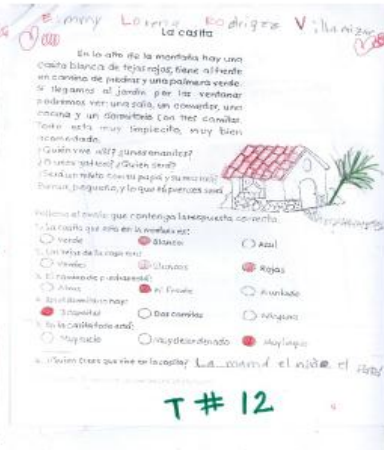 Eimmy Lorena Rodriguez Villamizar
La casita
En lo alto de la montaña hay una
casita blanca de tejas rojas; tiene al frente
un camino de piedras y una palmera verde.
Si llegamos al jardín por las ventanas
podremos ver: una sala, un comedor, una
cocina y un dormitorio con tres camitas.
Todo esta muy limpiecito, muy bien
acomodado.
¿Quién vive allí? ¿unos enanitos?
¿O unos gatitos? ¿Quién será?
¿Será un osito con su papá y su mamá?
que contenga la respuesta correcta
1. La casita que está en la montaña es:
Verde
Blanca
Azul
2. Las tejas de la casa son:
Verdes
Blancas
Rojas
3. El camino de piedras está:
Atras
Al frente
A un lado
4. En el dormitorio hay:
3 camitas
Dos camitas
Ninguna
5. En la casita todo está:
Muy sucio
Muy desordenado
Muy limpio
6. ¿Quien crees que vive en la casita? La mamá el niño el
T # 12